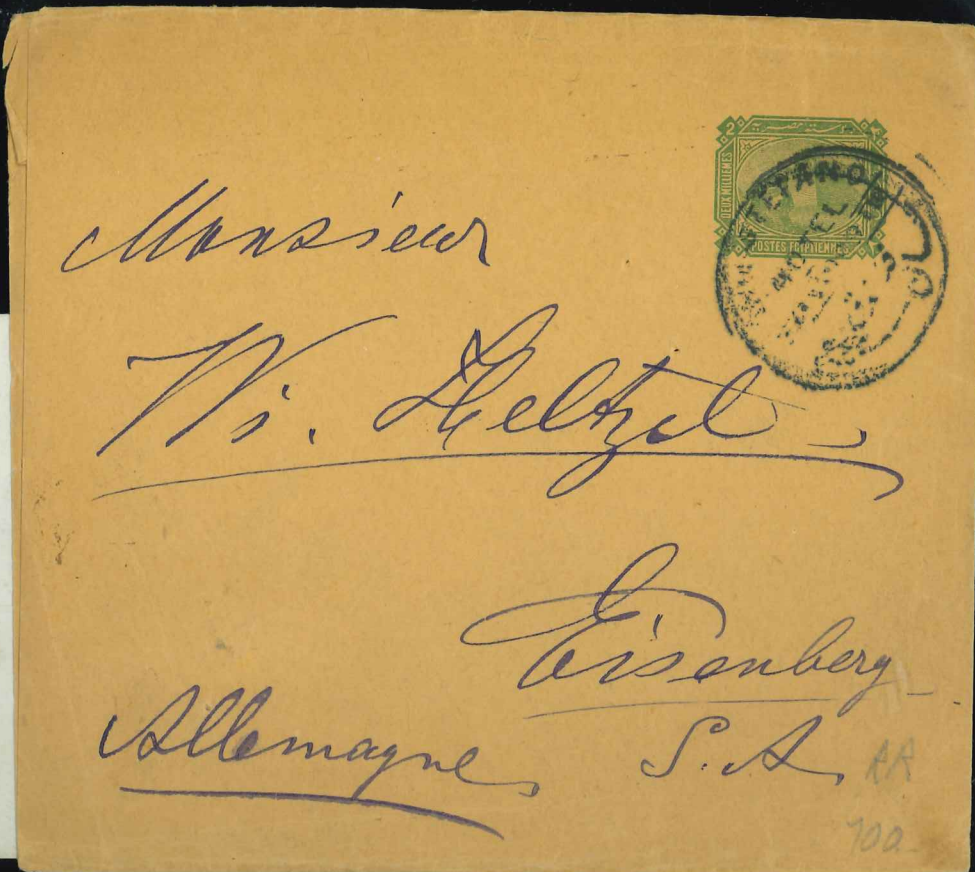 2
DEUX MILLIEMES
POSTES EGYPTIENNES
STEFANO
HOTEL
Monsieur
W. Heltzel
Eisenberg
Allemagne S. A.
RR
100